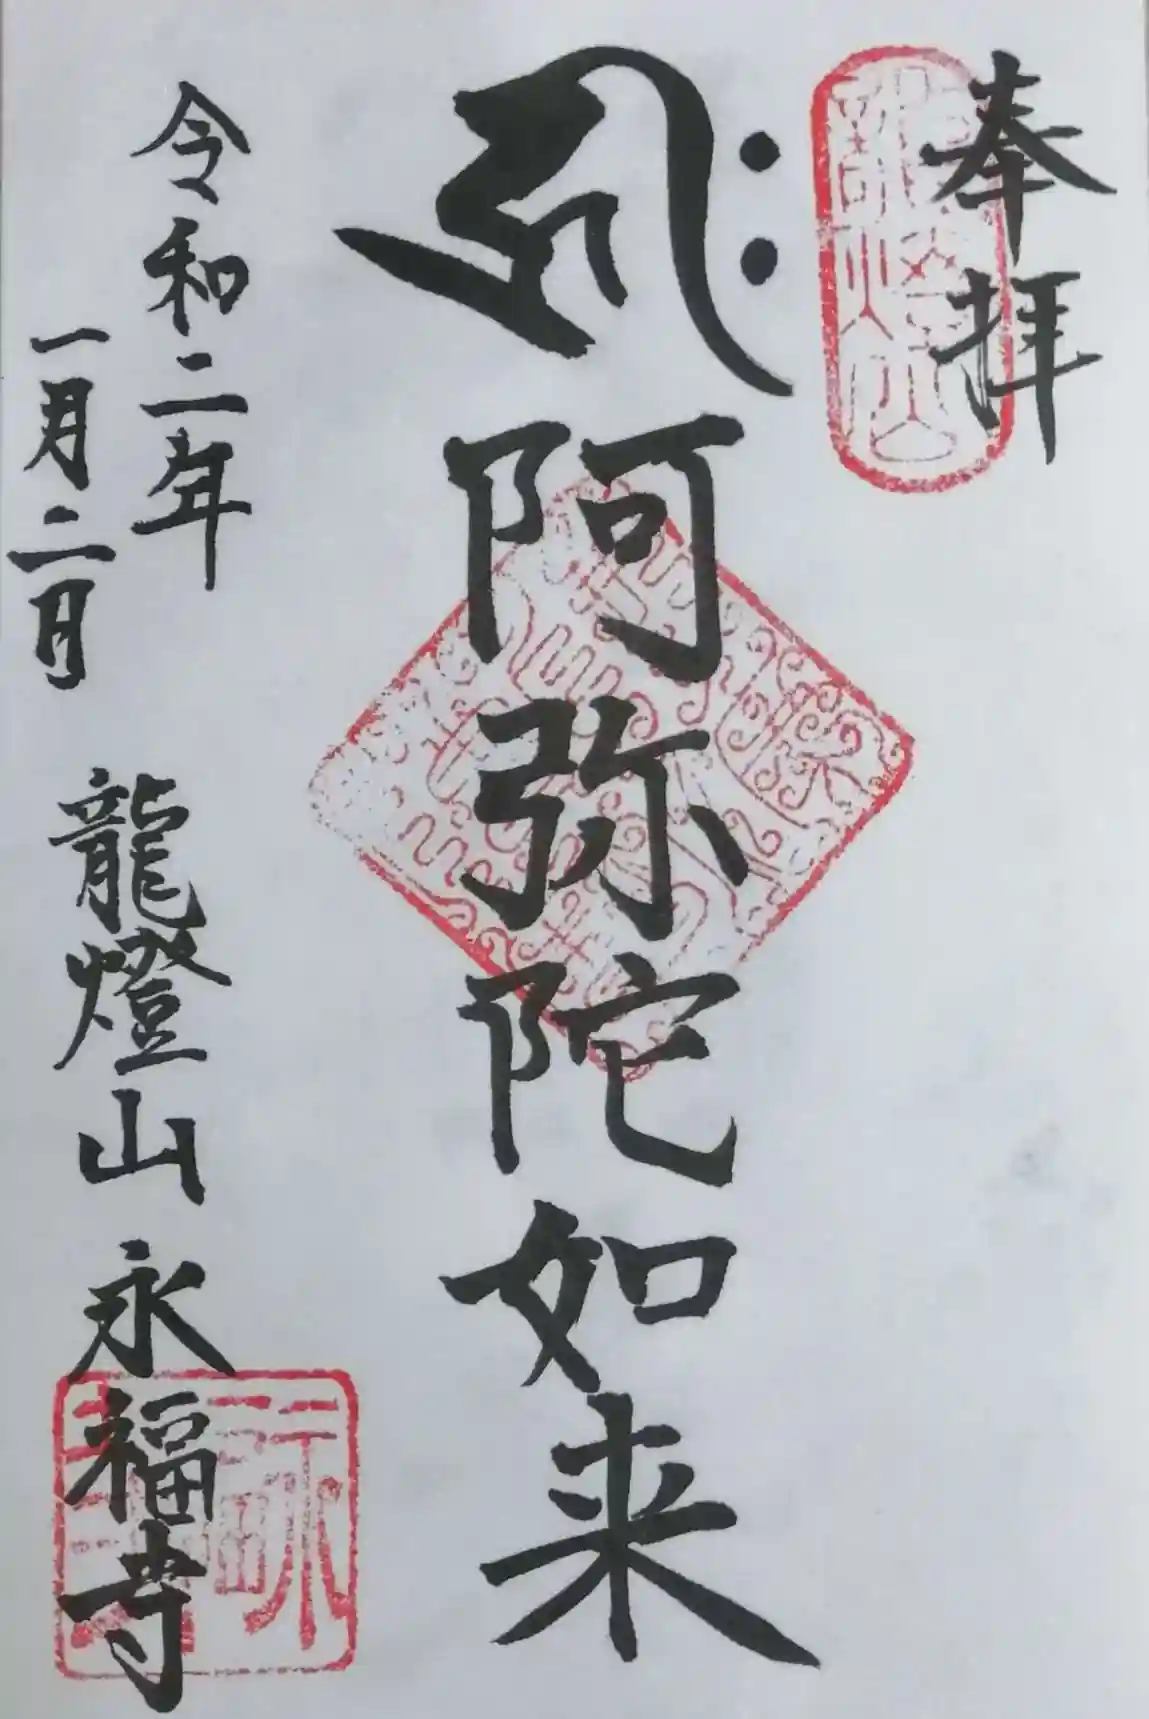 奉拝
ह्रीः
阿弥陀如来
令和二年
一月二日
龍燈山 永福寺